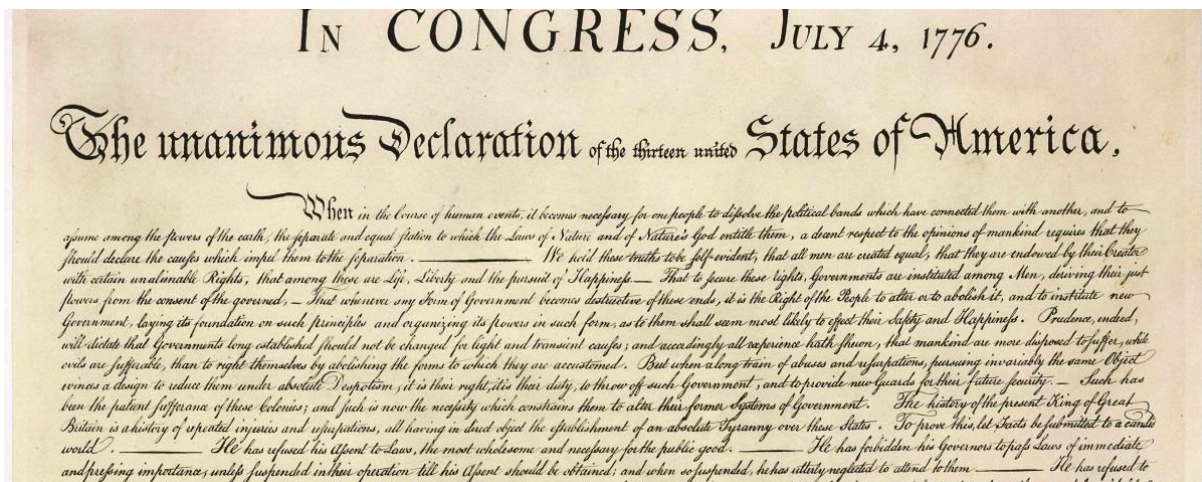 IN CONGRESS, JULY 4, 1776.
The unanimous Declaration of the thirteen united States of America,
When in the Course of human events, it becomes necessary for one people to dissolve the political bands which have connected them with another, and to
assume among the powers of the earth, the separate and equal station to which the Laws of Nature and of Nature's God entitle them, a decent respect to the opinions of mankind requires that they
should declare the causes which impel them to the separation. ——— We hold these truths to be self-evident, that all men are created equal, that they are endowed by their Creator
with certain unalienable Rights, that among these are Life, Liberty and the pursuit of Happiness.— That to secure these rights, Governments are instituted among Men, deriving their just
powers from the consent of the governed, — That whenever any Form of Government becomes destructive of these ends, it is the Right of the People to alter or to abolish it, and to institute new
Government, laying its foundation on such principles and organizing its powers in such form, as to them shall seem most likely to effect their Safety and Happiness. Prudence, indeed,
will dictate that Governments long established should not be changed for light and transient causes; and accordingly all experience hath shewn, that mankind are more disposed to suffer, while
evils are sufferable, than to right themselves by abolishing the forms to which they are accustomed. But when a long train of abuses and usurpations, pursuing invariably the same Object
evinces a design to reduce them under absolute Despotism, it is their right, it is their duty, to throw off such Government, and to provide new Guards for their future security. — Such has
been the patient sufferance of these Colonies; and such is now the necessity which constrains them to alter their former Systems of Government. The history of the present King of Great
Britain is a history of repeated injuries and usurpations, all having in direct object the establishment of an absolute Tyranny over these States. To prove this, let Facts be submitted to a candid
world. ——— He has refused his Assent to Laws, the most wholesome and necessary for the public good. ——— He has forbidden his Governors to pass Laws of immediate
and pressing importance, unless suspended in their operation till his Assent should be obtained; and when so suspended, he has utterly neglected to attend to them. ——— He has refused to